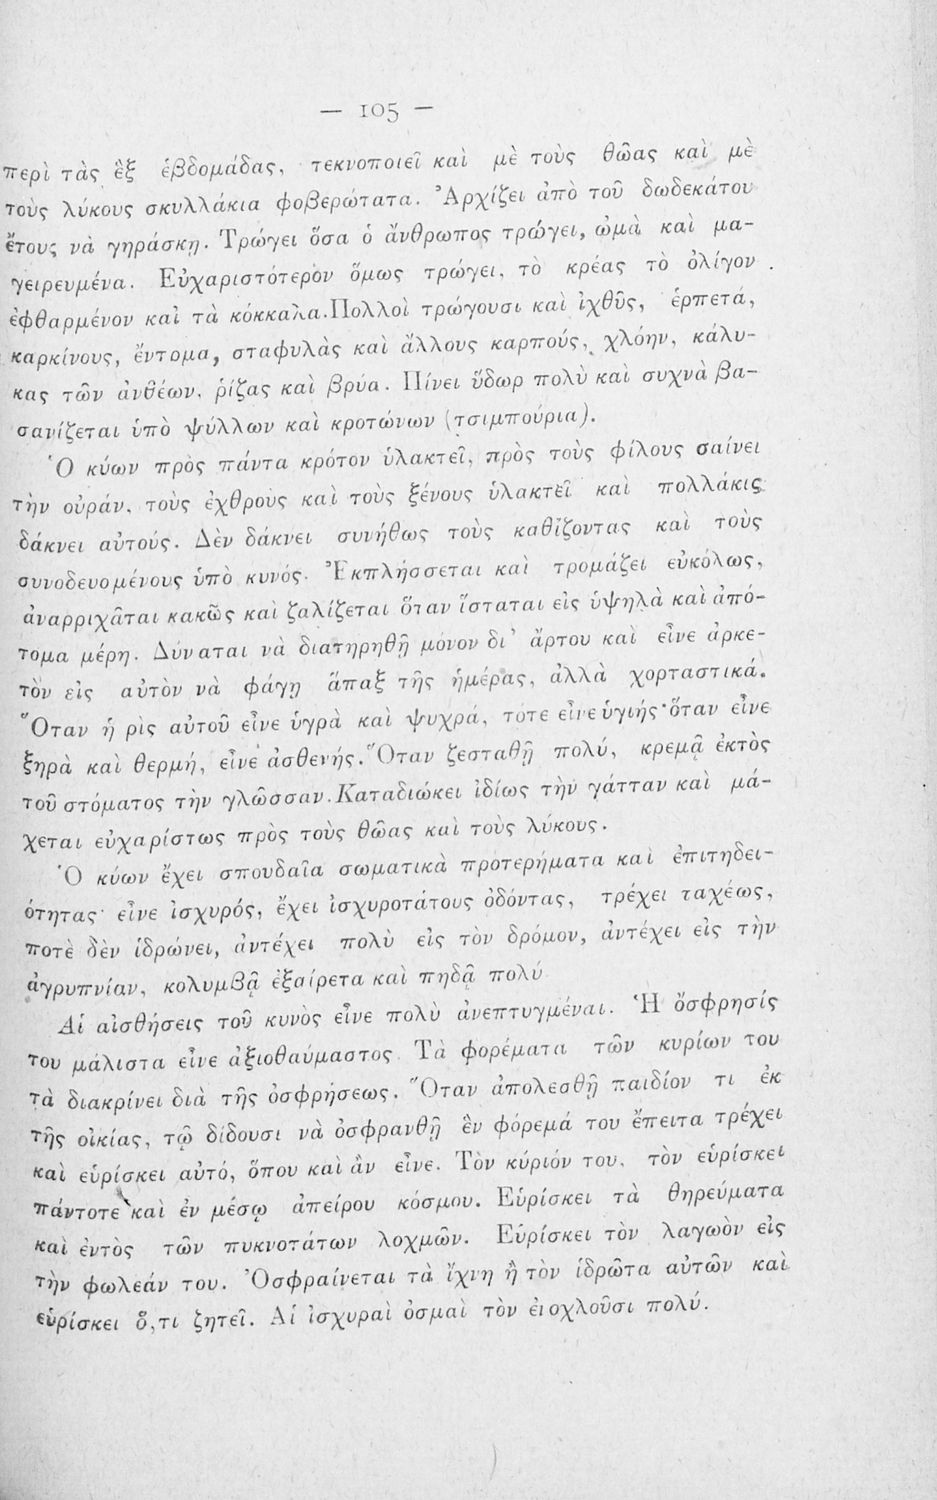 — 105 —
περὶ τὰς ἓξ ἑβδομάδας, τεκνοποιεῖ καὶ μὲ τοὺς θῶας καὶ μὲ
τοὺς λύκους σκυλλάκια φοβερώτατα. Ἀρχίζει ἀπὸ τοῦ δωδεκάτου
ἔτους νὰ γηράσκῃ. Τρώγει ὅσα ὁ ἄνθρωπος τρώγει, ὠμὰ καὶ μα-
γειρευμένα. Εὐχαριστότερον ὅμως τρώγει, τὸ κρέας τὸ ὀλίγον
ἐφθαρμένον καὶ τὰ κόκκαλα. Πολλοὶ τρώγουσι καὶ ἰχθῦς, ἑρπετά,
καρκίνους, ἔντομα, σταφυλὰς καὶ ἄλλους καρπούς, χλόην, κάλυ-
κας τῶν ἀνθέων, ῥίζας καὶ βρύα. Πίνει ὕδωρ πολὺ καὶ συχνὰ βα-
σανίζεται ὑπὸ ψύλλων καὶ κροτώνων (τσιμπούρια).
Ὁ κύων πρὸς πάντα κρότον ὑλακτεῖ, πρὸς τοὺς φίλους σαίνει
τὴν οὐράν, τοὺς ἐχθροὺς καὶ τοὺς ξένους ὑλακτεῖ καὶ πολλάκις
δάκνει αὐτούς. Δὲν δάκνει συνήθως τοὺς καθίζοντας καὶ τοὺς
συνοδευομένους ὑπὸ κυνός. Ἐκπλήσσεται καὶ τρομάζει εὐκόλως,
ἀναρριχᾶται κακῶς καὶ ζαλίζεται ὅταν ἵσταται εἰς ὑψηλὰ καὶ ἀπό-
τομα μέρη. Δύναται νὰ διατηρηθῇ μόνον δι’ ἄρτου καὶ εἶνε ἀρκε-
τὸν εἰς αὐτὸν νὰ φάγῃ ἅπαξ τῆς ἡμέρας, ἀλλὰ χορταστικά.
Ὅταν ἡ ρὶς αὐτοῦ εἶνε ὑγρὰ καὶ ψυχρά, τότε εἶνε ὑγιής· ὅταν εἶνε
ξηρὰ καὶ θερμή, εἶνε ἀσθενής. Ὅταν ζεσταθῇ πολύ, κρεμᾷ ἐκτὸς
τοῦ στόματος τὴν γλῶσσαν. Καταδιώκει ἰδίως τὴν γάτταν καὶ μά-
χεται εὐχαρίστως πρὸς τοὺς θῶας καὶ τοὺς λύκους.
Ὁ κύων ἔχει σπουδαῖα σωματικὰ προτερήματα καὶ ἐπιτηδει-
ότητας· εἶνε ἰσχυρός, ἔχει ἰσχυροτάτους ὀδόντας, τρέχει ταχέως,
ποτὲ δὲν ἱδρώνει, ἀντέχει πολὺ εἰς τὸν δρόμον, ἀντέχει εἰς τὴν
ἀγρυπνίαν, κολυμβᾷ ἐξαίρετα καὶ πηδᾷ πολύ
Αἱ αἰσθήσεις τοῦ κυνὸς εἶνε πολὺ ἀνεπτυγμέναι. Ἡ ὄσφρησίς
του μάλιστα εἶνε ἀξιοθαύμαστος. Τὰ φορέματα τῶν κυρίων του
τὰ διακρίνει διὰ τῆς ὀσφρήσεως. Ὅταν ἀπολεσθῇ παιδίον τι ἐκ
τῆς οἰκίας, τῷ δίδουσι νὰ ὀσφρανθῇ ἓν φόρεμά του ἔπειτα τρέχει
καὶ εὑρίσκει αὐτό, ὅπου καὶ ἂν εἶνε. Τὸν κύριόν του, τὸν εὑρίσκει
πάντοτε καὶ ἐν μέσῳ ἀπείρου κόσμου. Εὑρίσκει τὰ θηρεύματα
καὶ ἐντὸς τῶν πυκνοτάτων λοχμῶν. Εὑρίσκει τὸν λαγωὸν εἰς
τὴν φωλεάν του. Ὀσφραίνεται τὰ ἴχνη ἢ τὸν ἱδρῶτα αὐτῶν καὶ
εὑρίσκει ὅ,τι ζητεῖ. Αἱ ἰσχυραὶ ὀσμαὶ τὸν ἐνοχλοῦσι πολύ.